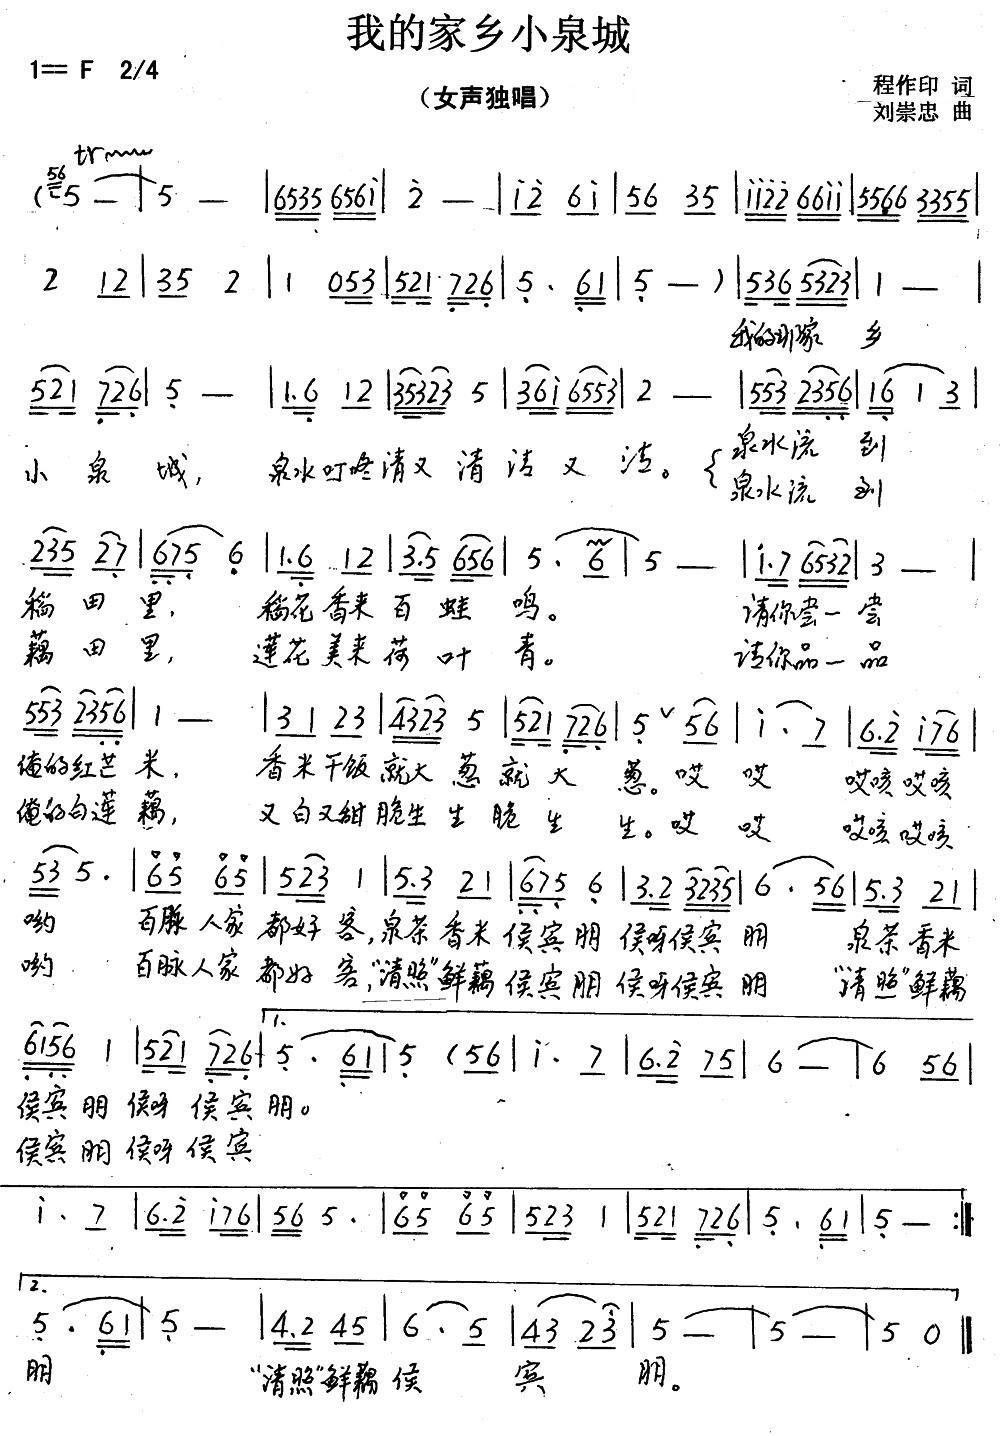 我的家乡小泉城
1== F 2/4
（女声独唱）
程作印 词
刘崇忠 曲
tr
(56 5 — | 5 — | 6535 656i | 2 — | i2 6i | 56 35 | ii22 66ii | 5566 3355 |
2 12 | 35 2 | 1 053 | 521 726 | 5 . 61 | 5 — ) | 536 5323 | 1 — |
我的那家 乡
521 726 | 5 — | 1.6 12 | 35323 5 | 36i 6553 | 2 — | 553 2356 | 16 1 3 |
小 泉 城， 泉水叮咚清又 清 洁 又 洁。 { 泉水流 到
泉水流 到
235 27 | 675 6 | 1.6 12 | 3.5 656 | 5 . 6 | 5 — | i.7 6532 | 3 — |
稻 田 里， 稻花香来百 蛙 鸣。 请你尝一 尝
藕 田 里， 莲花美来荷 叶 青。 请你品一 品
553 2356 | 1 — | 31 23 | 4323 5 | 521 726 | 5 ∨ 56 | i . 7 | 6.2 i76 |
俺的红芒 米， 香米干饭就大 葱就 大 葱。哎 哎 哎咳哎咳
俺的白莲 藕， 又白又甜脆生 生 脆 生 生。哎 哎 哎咳哎咳
53 5 . | 65 65 | 523 1 | 5.3 21 | 675 6 | 3.2 3235 | 6 . 56 | 5.3 21 |
哟 百脉人家 都好 客，泉茶香米 侯宾 朋 侯呀侯宾 朋 泉茶香米
哟 百脉人家 都好 客，“清照”鲜藕 侯宾 朋 侯呀侯宾 朋 “清照”鲜藕
6156 1 | 521 726 | 1. 5 . 61 | 5 (56 | i . 7 | 6.2 75 | 6 — | 6 56 |
侯宾 朋 侯呀 侯宾 朋。
侯宾 朋 侯呀 侯宾
i . 7 | 6.2 i76 | 56 5 . | 65 65 | 523 1 | 521 726 | 5 . 61 | 5 — :||
2. 5 . 61 | 5 — | 4.2 45 | 6 . 5 | 43 23 | 5 — | 5 — | 5 0 ||
朋 “清照”鲜藕 侯 宾 朋。